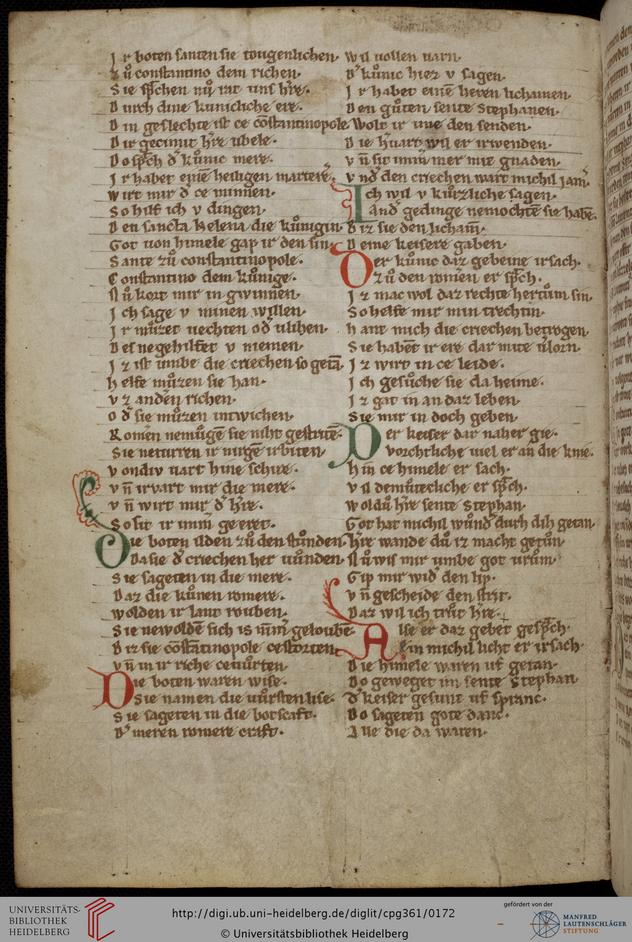 Ir boten santen sie tougenlichen·
zů constantino dem richen·
Sie sp̄chen nů nit uns h're·
Durch dine kunichche ere·
Din geslechte ist ce cōstantinopole
Dir gecimit h're ubele·
Do sp̄ch d' kůnic mere·
Ir habet einē heiligen martere·
wirt mir d' ce minnen·
So hilf ich v dingen·
Den sancta helena die kůnigin·
Got uon himele gap ir den sin·
Sante zů constantinopole·
Constantino dem kůnige·
Nů komt mir in gwinnen·
Ich sage v minen willen·
Ir můzet uechten od' ulihen·
Des negehilfet v niemen·
Iz ist umbe die criechen so getā·
helfe můzen sie han·
vz andern richen·
od' sie můzen intwichen·
Romēn nemůgē sie niht gestritē·
Sie neturren ir nirgē irbiten·
von div uart hine schire·
vn̄ iruart mir die mere·
vn̄ wirt mir d' h're·
So sit ir imm̄ geeret·
Die boten ilden zů den stůnden·
Da sie d' criechen her uůnden·
Sie sageten in die mere·
Daz die kůnen romere·
wolden ir lant rouben·
Sie newoldē sich is nim̄ gelouben·
Biz sie cōstātinopole cestorten·
vn̄ in ir riche cewůrten·
Die boten waren wise·
Sie namen die uůrsten lise·
Sie sageten in die botscaft·
D' meren romere craft·
Wil uollen uarn·
D' kůnic hiez v sagen·
Ir habet einē heren lichamen·
Den gůten sente Stephanen·
Wolt ir ime den senden·
Die h'uart wil er irwenden·
vn̄ sit immer mer mit gnaden·
vnd' den criechen wart michil iam'·
Ich wil v kůrzliche sagen·
Land' gedinge nemochtē sie habē·
Biz sie den lichām·
Deme keisere gaben·
Der kůnic daz gebeine irsach·
zů den romēn er sp̄ch·
Iz mac wol daz rechte hertům sin·
So helfe mir min trechtin·
hant mich die criechen betrogen·
Sie habēt ir ere dar mite v'lorn·
Iz wirt in ce leide·
Ich gesůche sie da heime·
Iz gat in an daz leben·
Sie mir in doch geben·
Der keiser dar naher gie·
Vorchtliche uiel er an die knie·
hin ce himele er sach·
vil demůtecliche er sp̄ch·
Wol dů h're sente Stephan·
Got hat michil wůnd' durh dih getan·
h're wande dů iz macht getůn·
Nů wis mir umbe got urům·
Gip mir wid' den lip·
vn̄ gescheide den strit·
Daz wil ich trut h're·
Alse er daz gebet gesp̄ch·
Ein michil licht er irsach·
Die himele waren uf getan·
Do geweget im sente Stephan
d' keiser gesunt uf spranc·
Do sageten gote danc·
Alle die da waren·
UNIVERSITÄTS-
BIBLIOTHEK
HEIDELBERG
http://digi.ub.uni-heidelberg.de/diglit/cpg361/0172
© Universitätsbibliothek Heidelberg
gefördert von der
MANFRED
LAUTENSCHLÄGER
STIFTUNG